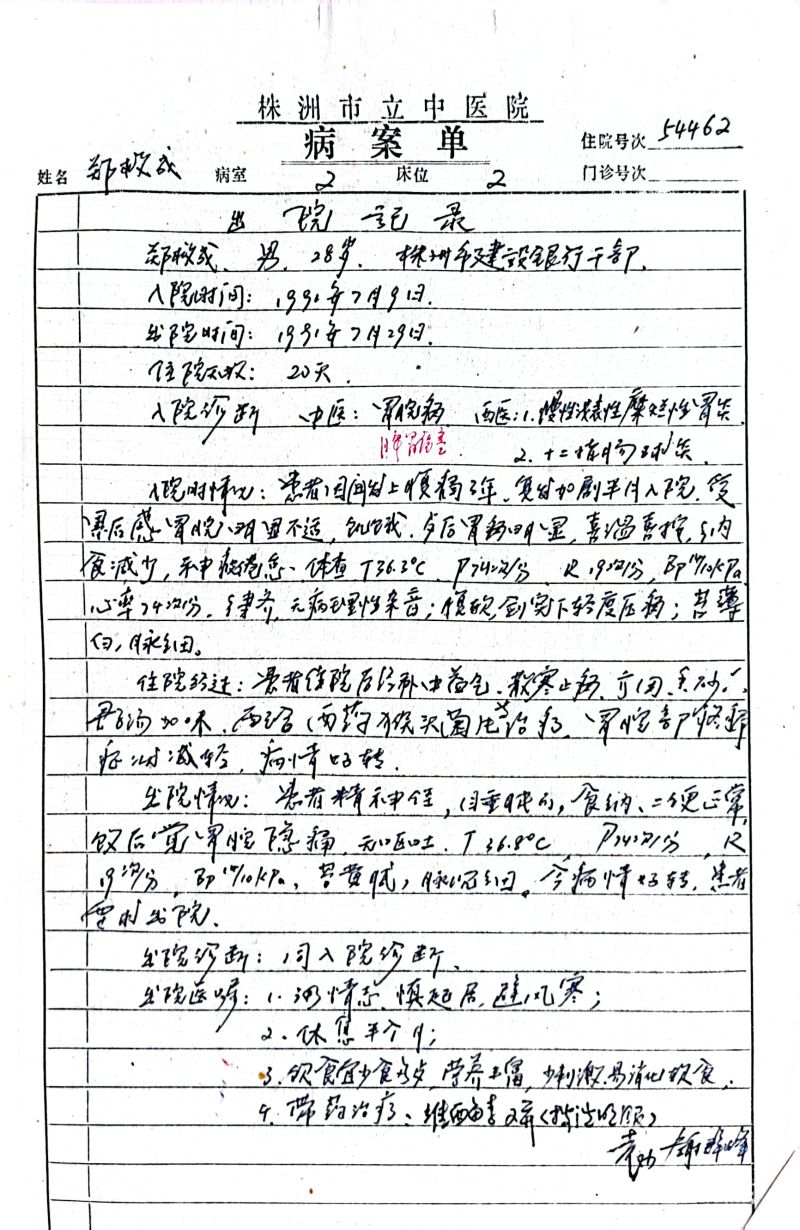 株洲市立中医院
病案单
住院号次 54462
姓名 郑 成 病室 2 床位 2 门诊号次
出院记录
郑 成、男、28岁、株洲市建设银行干部。
入院时间：1991年7月9日.
出院时间：1991年7月29日.
住院天数：20天.
入院诊断 中医：胃脘痛 西医：1.慢性浅表性糜烂性胃炎
脾胃虚寒
2.十二指肠球炎
入院时情况：患者因间发上腹痛3年，复发加剧半月入院。受
寒后感胃脘 不适，饥饿 后胃痛明显，喜温喜按，纳
食减少，神疲倦怠。体查T36.3℃ P74次/分 R19次/分，Bp /10kPa
心率74次/分，律齐，无病理性杂音；腹软，剑突下轻度压痛；苔薄
白，脉细。
住院经过：患者住院后经补中益气、散寒止痛
加味，西 治疗，胃脘部疼痛
症状减轻，病情好转.
出院情况：患者精神佳， 食纳、二便正常，
饭后觉胃脘隐痛，无呕吐. T36.8℃ P74次/分，R
19次/分，Bp /10kPa，苔黄腻，脉沉细。今病情好转，患者
要求出院.
出院诊断：同入院诊断.
出院医嘱：1. 情志，慎起居，避风寒；
2.休息半个月；
3.饮食宜少食多 ，营养丰富，少刺激易消化饮食.
4.带药治疗：